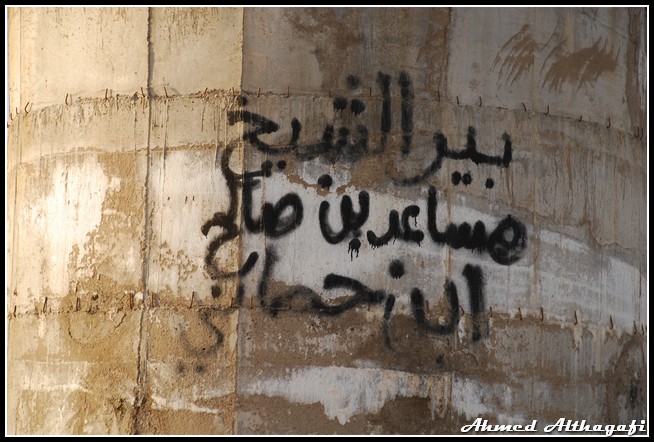 بير الشيخ
مساعد بن صالح
ابن
Ahmed Althagafi